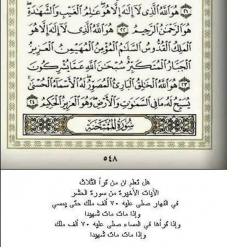 هُوَ ٱللَّهُ ٱلَّذِى لَآ إِلَـٰهَ إِلَّا هُوَ عَـٰلِمُ ٱلْغَيْبِ وَٱلشَّهَـٰدَةِ
هُوَ ٱلرَّحْمَـٰنُ ٱلرَّحِيمُ ٢٢ هُوَ ٱللَّهُ ٱلَّذِى لَآ إِلَـٰهَ إِلَّا هُوَ
ٱلْمَلِكُ ٱلْقُدُّوسُ ٱلسَّلَـٰمُ ٱلْمُؤْمِنُ ٱلْمُهَيْمِنُ ٱلْعَزِيزُ
ٱلْجَبَّارُ ٱلْمُتَكَبِّرُ سُبْحَـٰنَ ٱللَّهِ عَمَّا يُشْرِكُونَ
٢٣ هُوَ ٱللَّهُ ٱلْخَـٰلِقُ ٱلْبَارِئُ ٱلْمُصَوِّرُ لَهُ ٱلْأَسْمَآءُ ٱلْحُسْنَىٰ
يُسَبِّحُ لَهُۥ مَا فِى ٱلسَّمَـٰوَٰتِ وَٱلْأَرْضِ وَهُوَ ٱلْعَزِيزُ ٱلْحَكِيمُ ٢٤
سُورَةُ ٱلْمُمْتَحَنَةِ
٥٤٨
هل تعلم ان من قرأ الثلاث
الآيات الأخيرة من سورة الحشر
في النهار صلى عليه ٧٠ ألف ملك حتى يمسي
وإذا مات مات شهيدا
وإذا قرأها في المساء صلى عليه ٧٠ ألف ملك
وإذا مات مات شهيدا